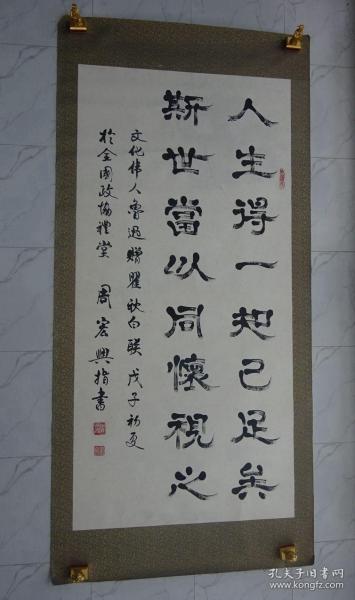 人生得一知己足矣
斯世當以同懷視之
文化伟人魯迅赠瞿秋白联 戊子初夏
於全國政协禮堂 周宏興指書
孔夫子旧书网
www.kongfz.com